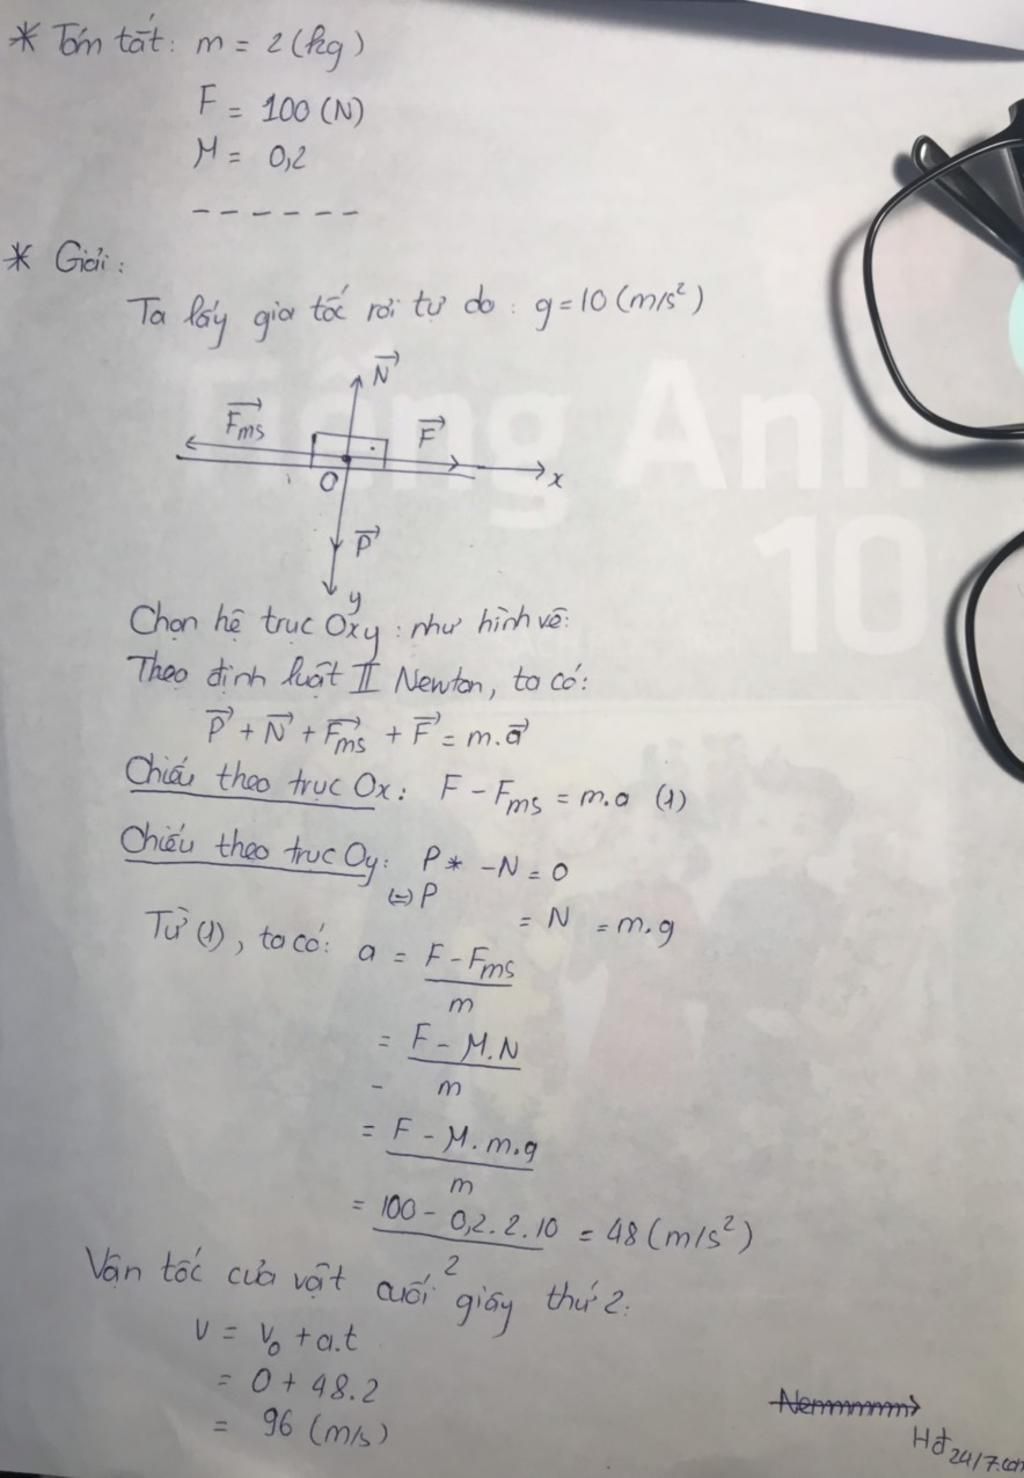 * Tóm tắt: m = 2 (kg)
F = 100 (N)
μ = 0,2
------
* Giải:
Ta lấy gia tốc rơi tự do: g = 10 (m/s²)
N⃗
F⃗ms
F⃗
O
x
P⃗
y
Chọn hệ trục Oxy: như hình vẽ:
Theo định luật II Newton, ta có:
P⃗ + N⃗ + F⃗ms + F⃗ = m.a⃗
Chiếu theo trục Ox: F - Fms = m.a (1)
Chiếu theo trục Oy: P * - N = 0
⇔ P = N = m.g
Từ (1), ta có: a = (F - Fms)/m
= (F - μ.N)/m
= (F - μ.m.g)/m
= (100 - 0,2.2.10)/2 = 48 (m/s²)
Vận tốc của vật cuối giây thứ 2:
v = v₀ + a.t
= 0 + 48.2
= 96 (m/s)
Hđ 24/7.com
Tiếng Anh
10